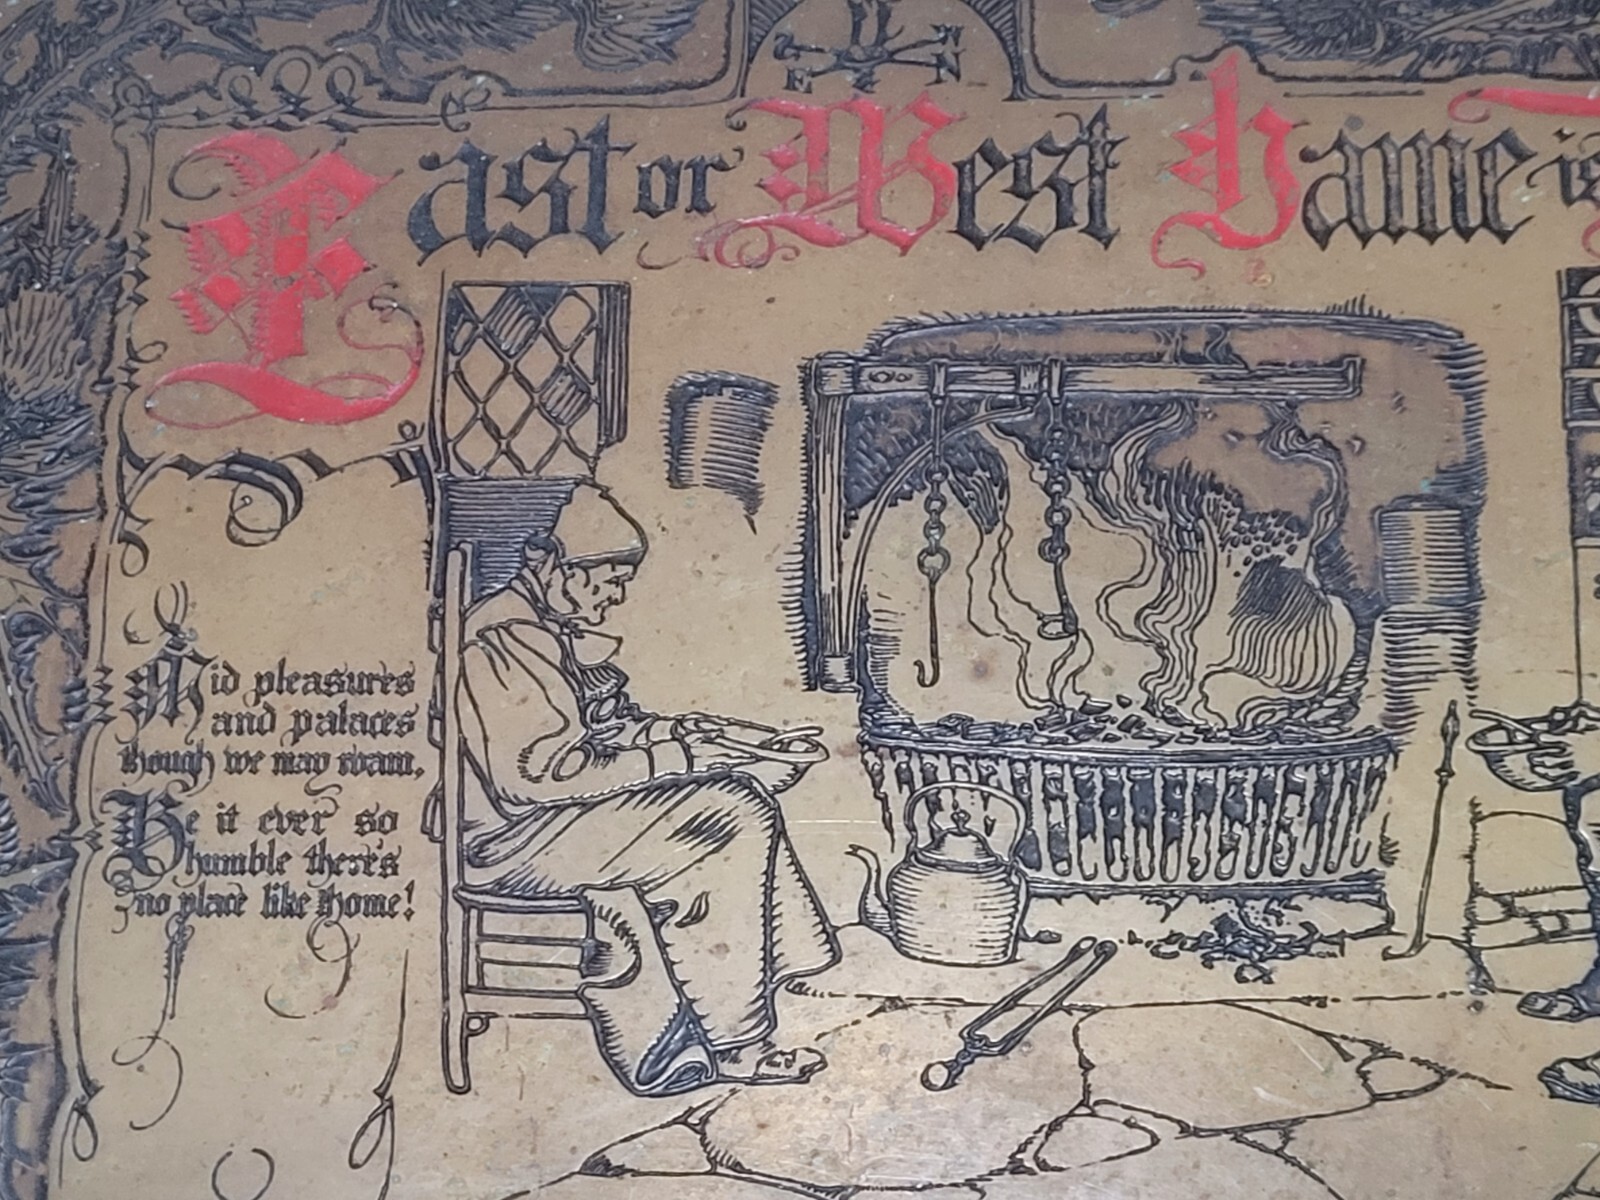 East or West Hame is
Mid pleasures
and palaces
though we may roam,
Be it ever so
humble there's
no place like home!